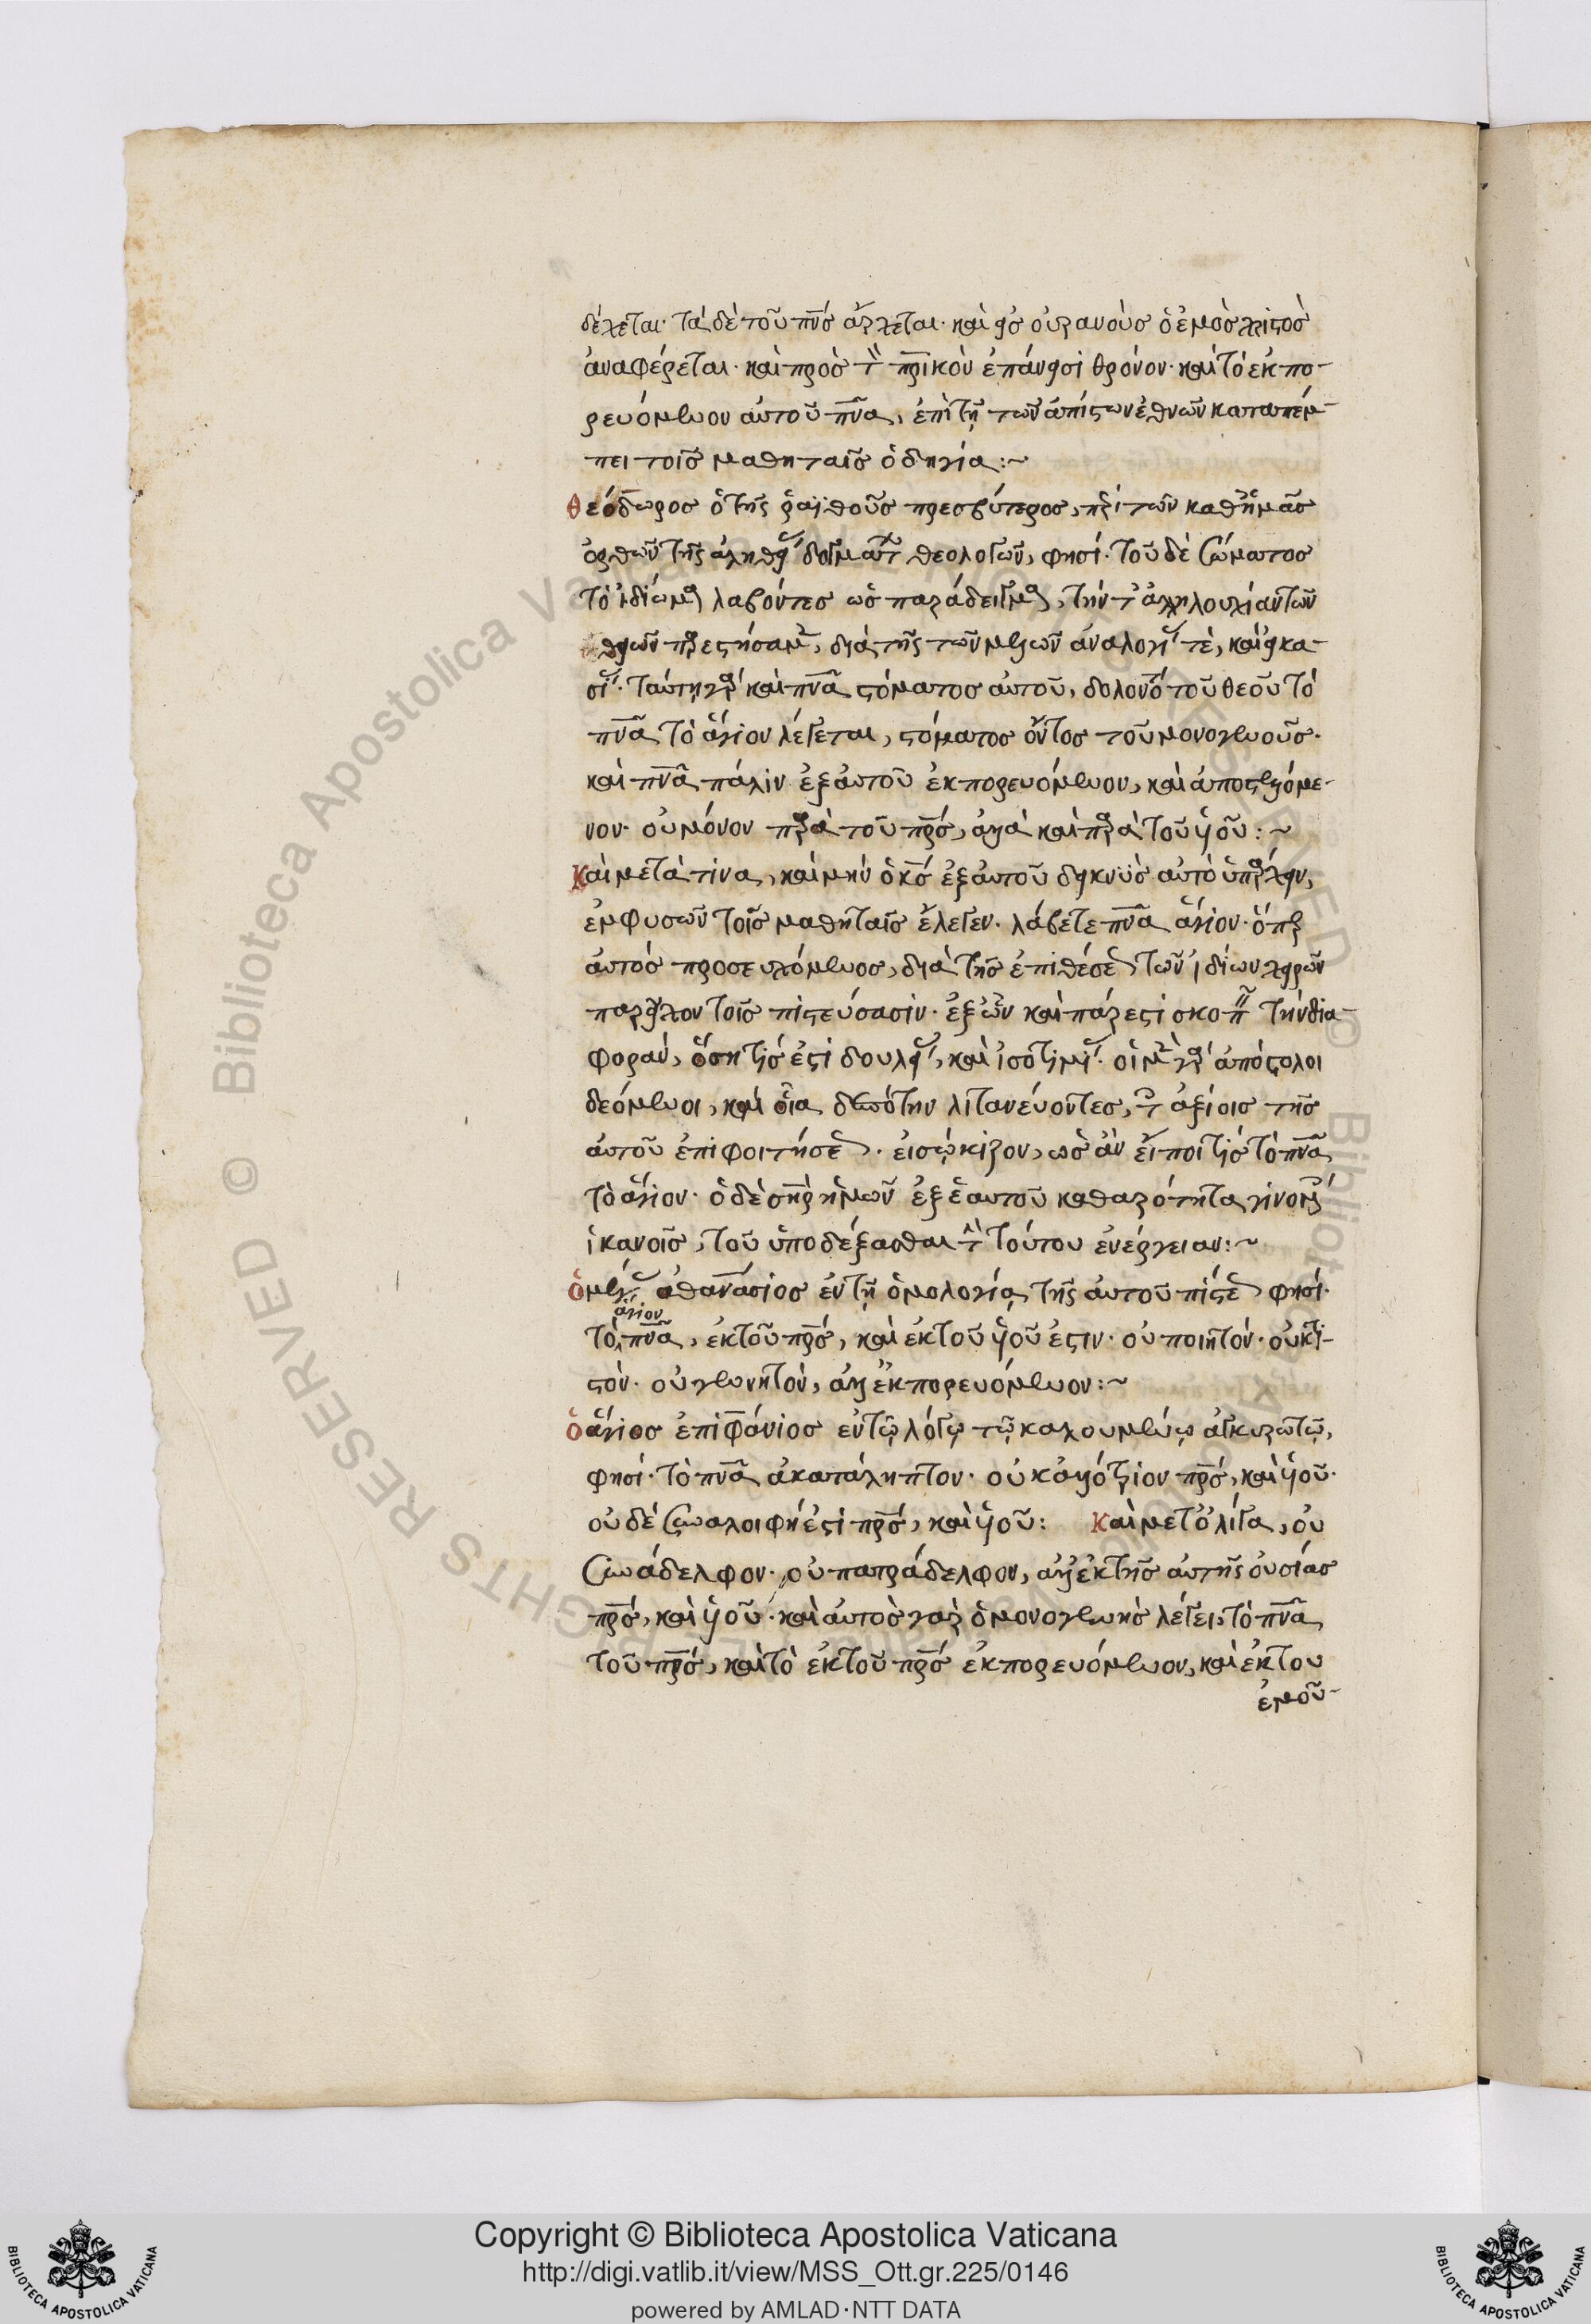 δέχεται· τὰ δὲ τοῦ πνσ ἄρχεται· καὶ εἰσ οὐρανοὺσ ὁ ἐμὸσ χριστὸσ
ἀναφέρεται· καὶ πρὸσ τὸν πρικὸν ἐπάνεισι θρόνον· καὶ τὸ ἐκπο-
ρευόμενον αὐτοῦ πνα, ἐπὶ τῇ τῶν ἀπίστων ἐθνῶν καταπέμ-
πει τοῖσ μαθηταῖσ ὁδηγία:~
Θεόδωροσ ὁ τῆς ῥαϊθοῦσ πρεσβύτεροσ, περὶ τῶν καθ' ἡμᾶσ
ὀρθῶν τῆς ἀληθείας δογμάτων θεολογῶν, φησί· τοῦ δὲ σώματοσ
τὸ ἰδίωμα λαβόντεσ ὡσ παράδειγμα, τὴν τ ἀλληλουχίαν τῶν
θείων παρεστήσαμεν, διὰ τῆς τῶν μελῶν ἀναλογίας τὲ, καὶ εἰκα-
σίας· ταύτη γὰρ καὶ πνα στόματοσ αὐτοῦ, δηλονότι τοῦ θεοῦ τὸ
πνα τὸ ἅγιον λέγεται, στόματοσ ὄντοσ τοῦ μονογενοῦσ·
καὶ πνα πάλιν ἐξ αὐτοῦ ἐκπορευόμενον, καὶ ἀποστελλόμε-
νον· οὐ μόνον παρὰ τοῦ πρσ, ἀλλὰ καὶ παρὰ τοῦ υἱοῦ:~
Καὶ μετὰ τινα, καὶ μὴν ὁ κσ ἐξ αὐτοῦ δεικνὺσ αὐτὸ ὑπάρχειν,
ἐμφυσῶν τοῖσ μαθηταῖσ ἔλεγεν· λάβετε πνα ἅγιον· ὅπερ
αὐτοὶ προσευχόμενοσ, διὰ τῆσ ἐπιθέσεως τῶν ἰδίων χειρῶν
παρεῖχον τοῖσ πιστεύσασιν· ἐξ ὧν καὶ πάρεστι σκοπεῖν τὴν δια-
φορὰν, ὅση τίσ ἐστὶ δουλείας, καὶ ἰσοτιμίας· οἱ μὲν γὰρ ἀπόστολοι
δεόμενοι, καὶ οἷα δεσπότην λιτανεύοντεσ, τοῖς ἀξίοισ τῆσ
αὐτοῦ ἐπιφοιτήσεως· εἰσώκιζον, ὡσ ἂν εἴποι τίσ τὸ πνα
τὸ ἅγιον· ὁ δὲ σηρ ἡμῶν ἐξ ἑαυτοῦ καθαρότητα γινομένοις
ἱκανοῖσ, τοῦ ὑποδέξασθαι τὴν τούτου ἐνέργειαν:~
ὁ μέγας ἀθανάσιοσ ἐν τῇ ὁμολογίᾳ τῆς αὐτοῦ πίστεως φησί·
τὸ ἅγιον πνα, ἐκ τοῦ πρσ, καὶ ἐκ τοῦ υἱοῦ ἐστιν· οὐ ποιητόν· οὐ κτι-
στὸν· οὐ γεννητὸν, ἀλλ' ἐκπορευόμενον:~
ὁ ἅγιοσ ἐπιφάνιοσ ἐν τῷ λόγῳ τῷ καλουμένῳ ἀγκυρωτῷ,
φησί· τὸ πνα ἀκατάληπτον· οὐκ ἀλλότριον πρσ, καὶ υἱοῦ·
οὐδὲ συναλοιφή ἐστὶ πρσ, καὶ υἱοῦ: Καὶ μετ' ὀλίγα, οὐ
συνάδελφον· οὐ πατράδελφον, ἀλλ' ἐκ τῆσ αὐτῆς οὐσίασ
πρσ, καὶ υἱοῦ· καὶ αὐτὸσ γὰρ ὁ μονογενὴσ λέγει, τὸ πνα
τοῦ πρσ, καὶ τὸ ἐκ τοῦ πρσ ἐκπορευόμενον, καὶ ἐκ του
ἐμοῦ-
Copyright © Biblioteca Apostolica Vaticana
http://digi.vatlib.it/view/MSS_Ott.gr.225/0146
powered by AMLAD·NTT DATA
BIBLIOTECA APOSTOLICA VATICANA
BIBLIOTECA APOSTOLICA VATICANA